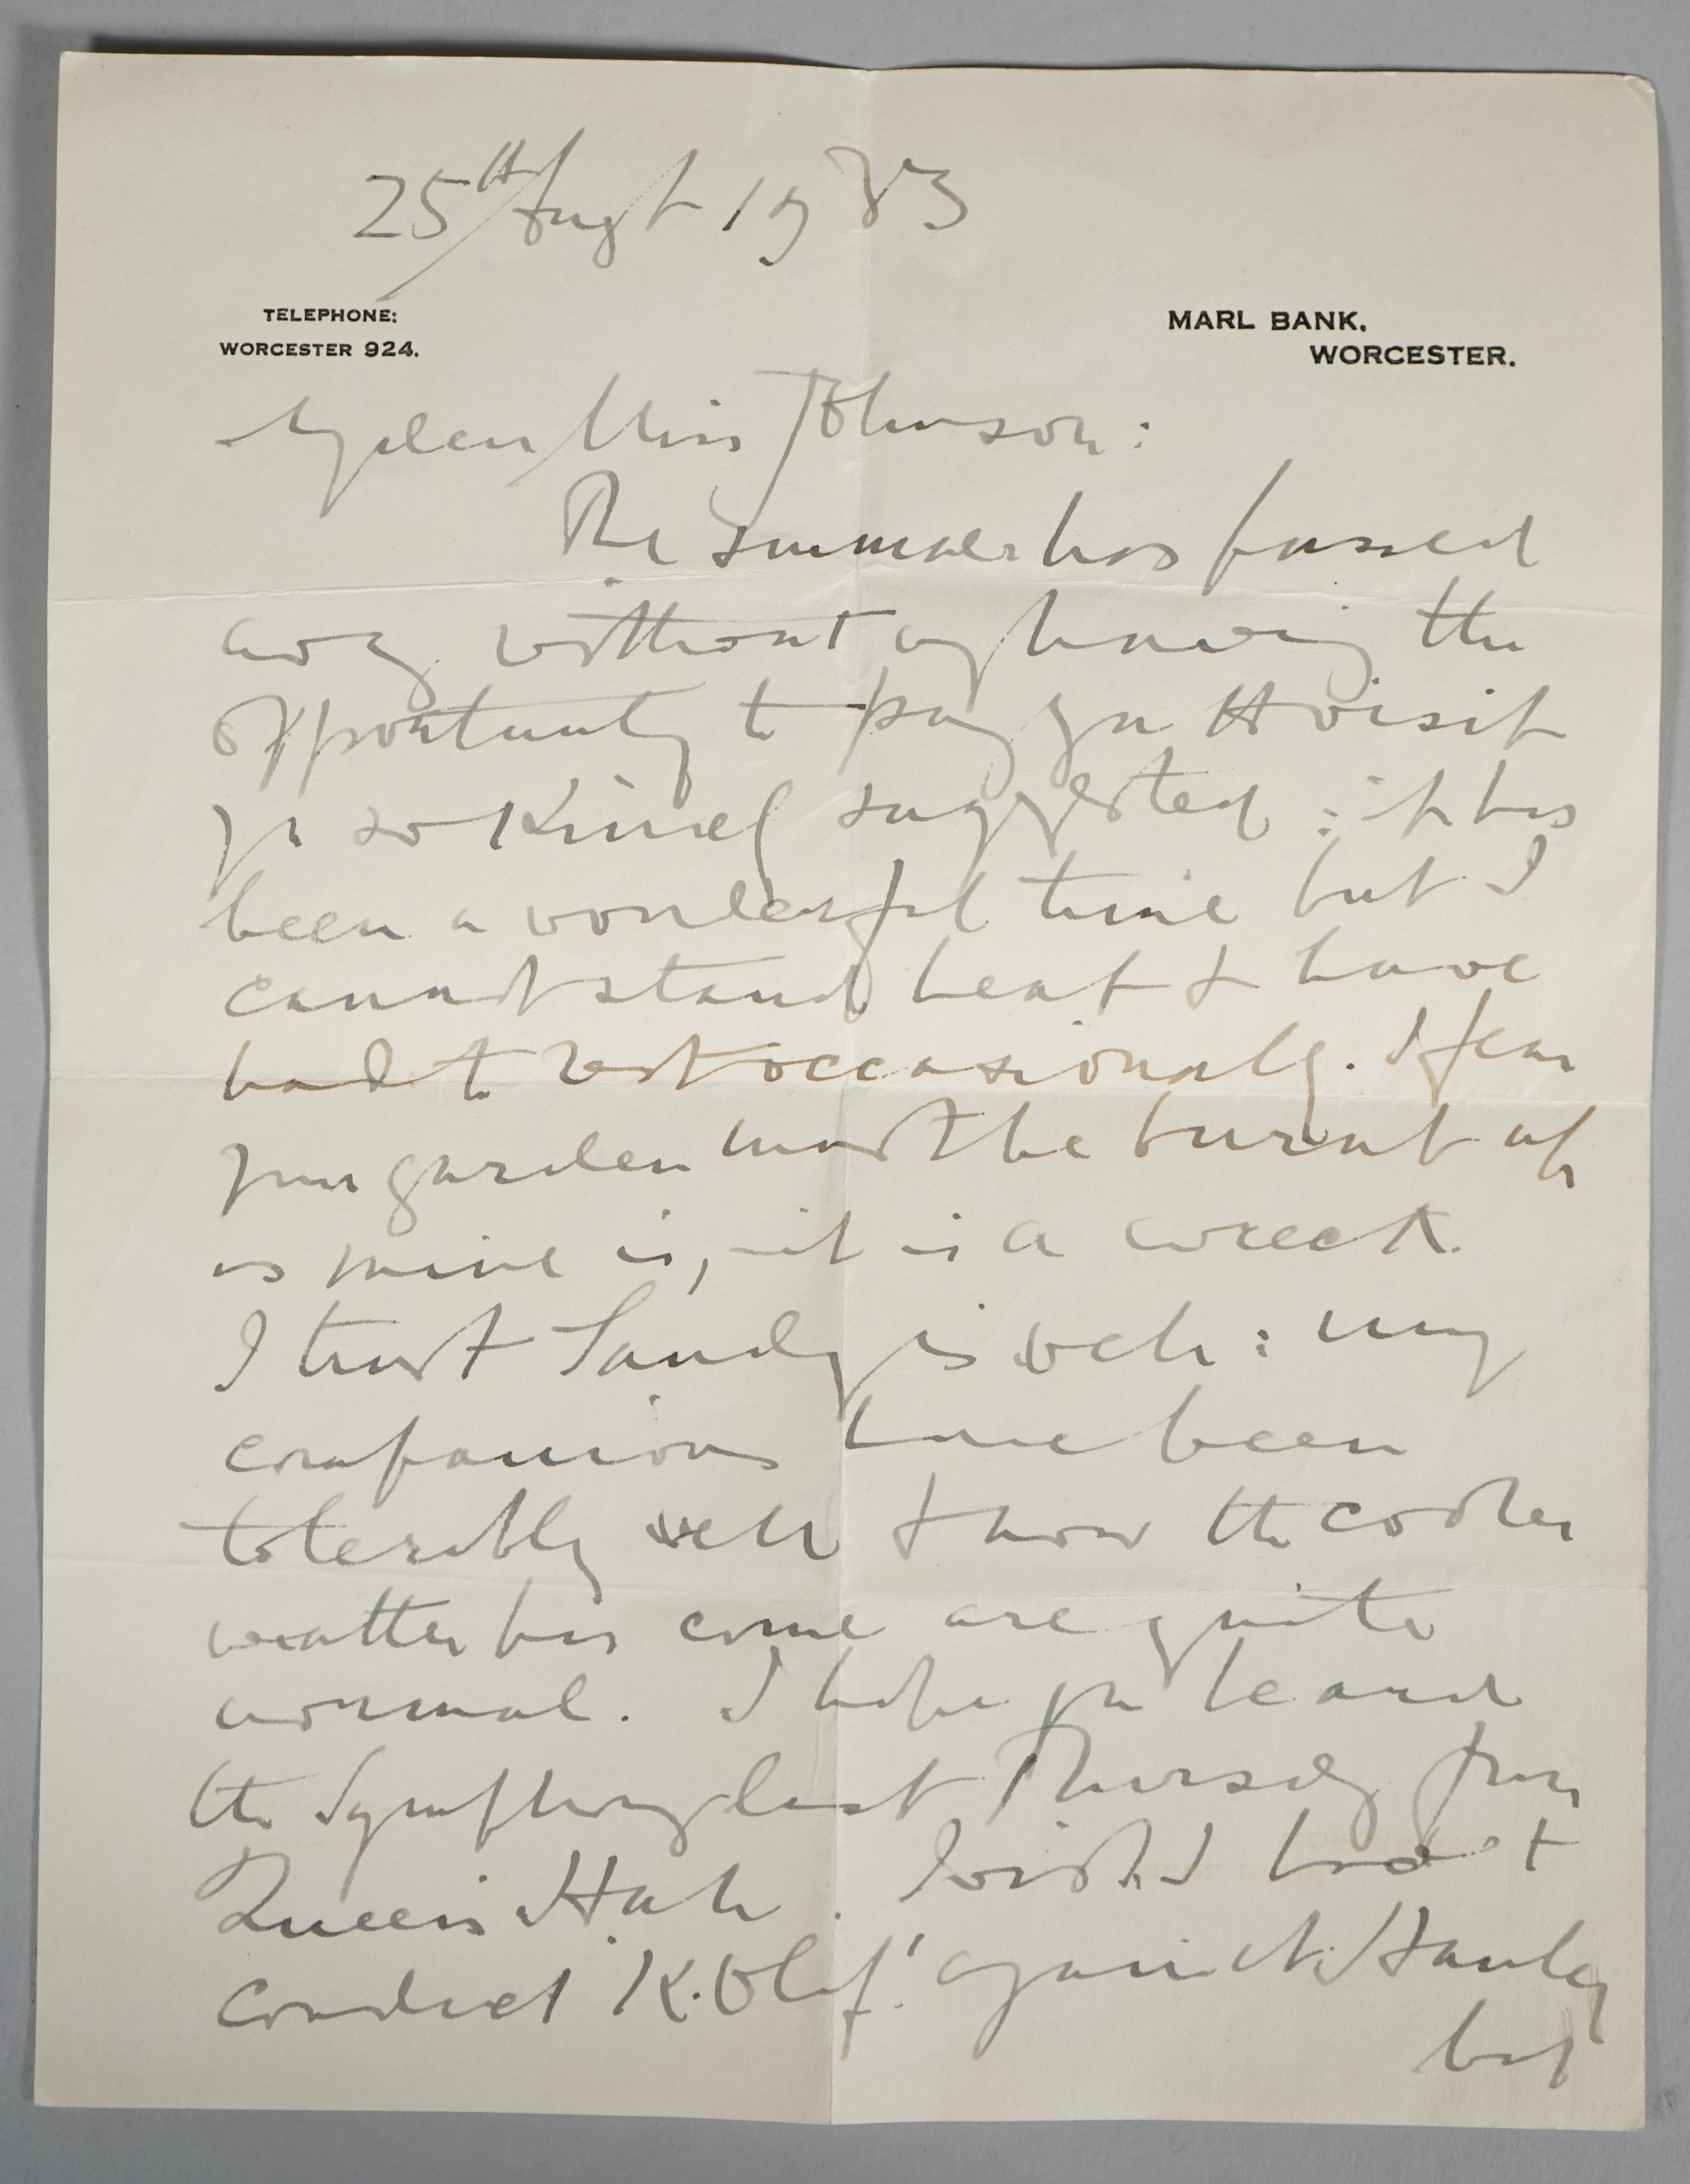 25th Augt 1933
TELEPHONE:
WORCESTER 924.
MARL BANK,
WORCESTER.
My dear Miss Johnson:
The summer has passed
away without my having the
opportunity to pay you the visit
you so kindly suggested: it has
been a wonderful time but I
cannot stand heat & have
had to rest occasionally. I fear
your garden must be burnt up
as mine is, – it is a wreck.
I trust Sandy is well: my
companions have been
tolerably well & now the cooler
weather has come are quite
normal. I hope you heard
the Symphony last Thursday from
Queen's Hall. I wish I had to
conduct 'K. Olaf' again at Hanley
but